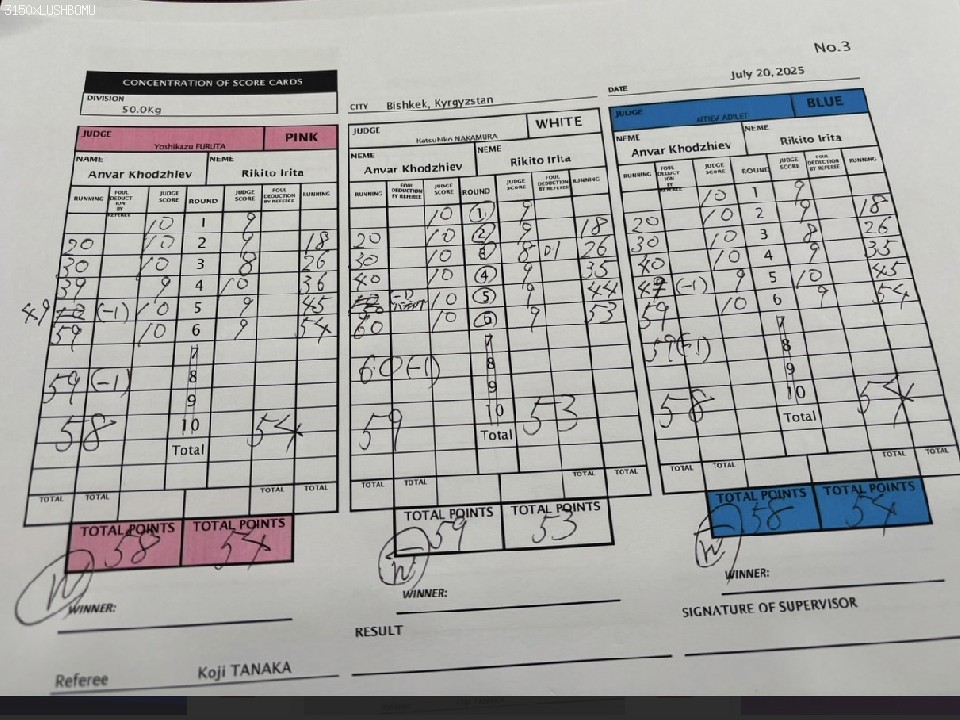 3150×LUSHBOMU
No.3
CONCENTRATION OF SCORE CARDS
DIVISION
50.0Kg
CITY Bishkek, Kyrgyzstan
DATE July 20, 2025
JUDGE Yoshikazu FURUTA PINK
NAME Anvar Khodzhiev NEME Rikito Irita
RUNNING FOUL DEDUCTION BY REFEREE JUDGE SCORE ROUND JUDGE SCORE FOUL DEDUCTION BY REFEREE RUNNING
10 1 9
20 10 2 9 18
30 10 3 8 26
39 9 4 10 36
49 (-1) 10 5 9 45
59 10 6 9 54
7
59 (-1) 8
9
58 10 54
Total
TOTAL TOTAL TOTAL TOTAL
TOTAL POINTS TOTAL POINTS
58 54
W
WINNER:
Referee Koji TANAKA
JUDGE Katsuhiko NAKAMURA WHITE
NEME Anvar Khodzhiev NEME Rikito Irita
RUNNING FOUL DEDUCTION BY REFEREE JUDGE SCORE ROUND JUDGE SCORE FOUL DEDUCTION BY REFEREE RUNNING
10 1 9
20 10 2 9 18
30 10 3 8 26
40 10 4 9 35
10 5 9 44
60 10 6 9 53
7
60 (-1) 8
9
59 10 53
Total
TOTAL TOTAL TOTAL TOTAL
TOTAL POINTS TOTAL POINTS
59 53
W
WINNER:
RESULT
JUDGE BLUE
NEME Anvar Khodzhiev NEME Rikito Irita
RUNNING FOUL DEDUCTION BY REFEREE JUDGE SCORE ROUND JUDGE SCORE FOUL DEDUCTION BY REFEREE RUNNING
10 1 9
20 10 2 9 18
30 10 3 8 26
40 10 4 9 35
(-1) 9 5 10 45
59 10 6 9 54
7
59 (-1) 8
9
58 10 54
Total
TOTAL TOTAL TOTAL TOTAL
TOTAL POINTS TOTAL POINTS
58 54
W
WINNER:
SIGNATURE OF SUPERVISOR